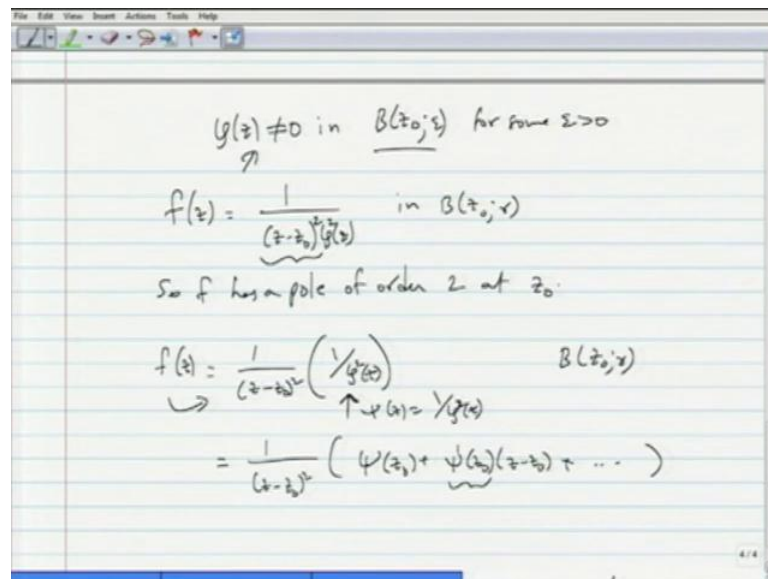 File Edit View Insert Actions Tools Help
φ(z) ≠ 0 in B(z₀; ε) for some ε>0
↑
f(z) = 1/((z-z₀)²φ²(z)) in B(z₀; r)
So f has a pole of order 2 at z₀.
f(z) = 1/(z-z₀)² (1/φ²(z)) B(z₀; r)
↑ ψ(z) = 1/φ²(z)
= 1/(z-z₀)² ( ψ(z₀) + ψ'(z₀)(z-z₀) + ... )
4/4